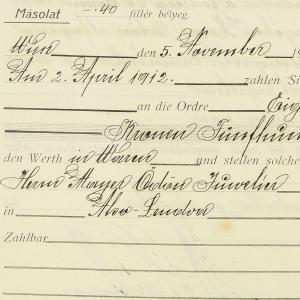 Másolat -.40 fillér bélyeg.
Wien den 5. November 19
Am 2. April 1912. zahlen Si
an die Ordre Eige
Kronen Fünfhun
den Werth in Waren und stellen solche
Herrn Mayer Ödön Juwelier
in Alsó-Lendva
Zahlbar